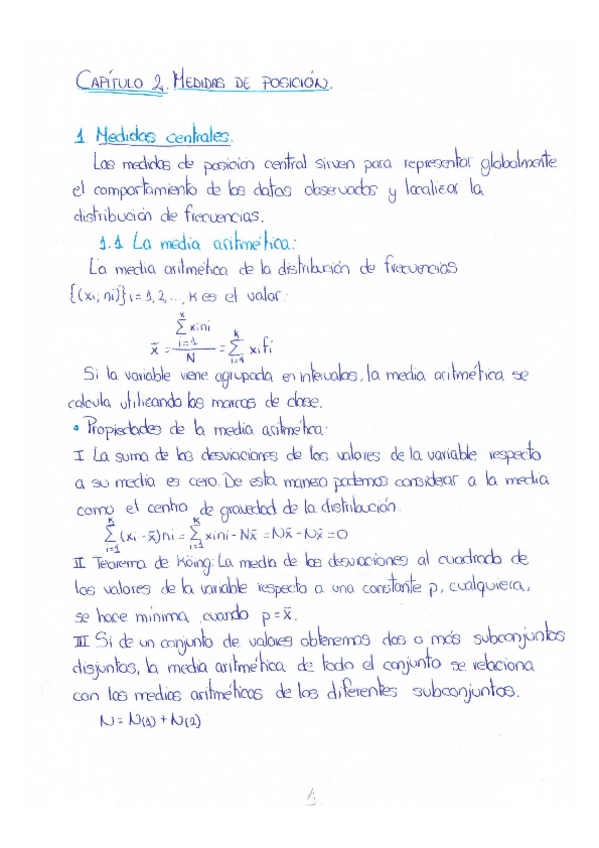 CAPÍTULO 2. MEDIDAS DE POSICIÓN.
1 Medidas centrales.
Las medidas de posición central sirven para representar globalmente
el comportamiento de los datos observados y localizar la
distribución de frecuencias.
1.1 La media aritmética:
La media aritmética de la distribución de frecuencias
{(xi; ni)} i = 1, 2, ..., K es el valor:
x̄ = Σ_{i=1}^{K} xini / N = Σ_{i=1}^{K} xifi
Si la variable viene agrupada en intervalos, la media aritmética se
calcula utilizando las marcas de clase.
• Propiedades de la media aritmética:
I La suma de las desviaciones de los valores de la variable respecto
a su media es cero. De esta manera podemos considerar a la media
como el centro de gravedad de la distribución.
Σ_{i=1}^{K} (xi - x̄)ni = Σ_{i=1}^{K} xini - Nx̄ = Nx̄ - Nx̄ = 0
II Teorema de Köing: La media de las desviaciones al cuadrado de
los valores de la variable respecto a una constante p, cualquiera,
se hace mínima cuando p = x̄.
III Si de un conjunto de valores obtenemos dos o más subconjuntos
disjuntos, la media aritmética de todo el conjunto se relaciona
con las medias aritméticas de los diferentes subconjuntos.
N = N(1) + N(2)
1